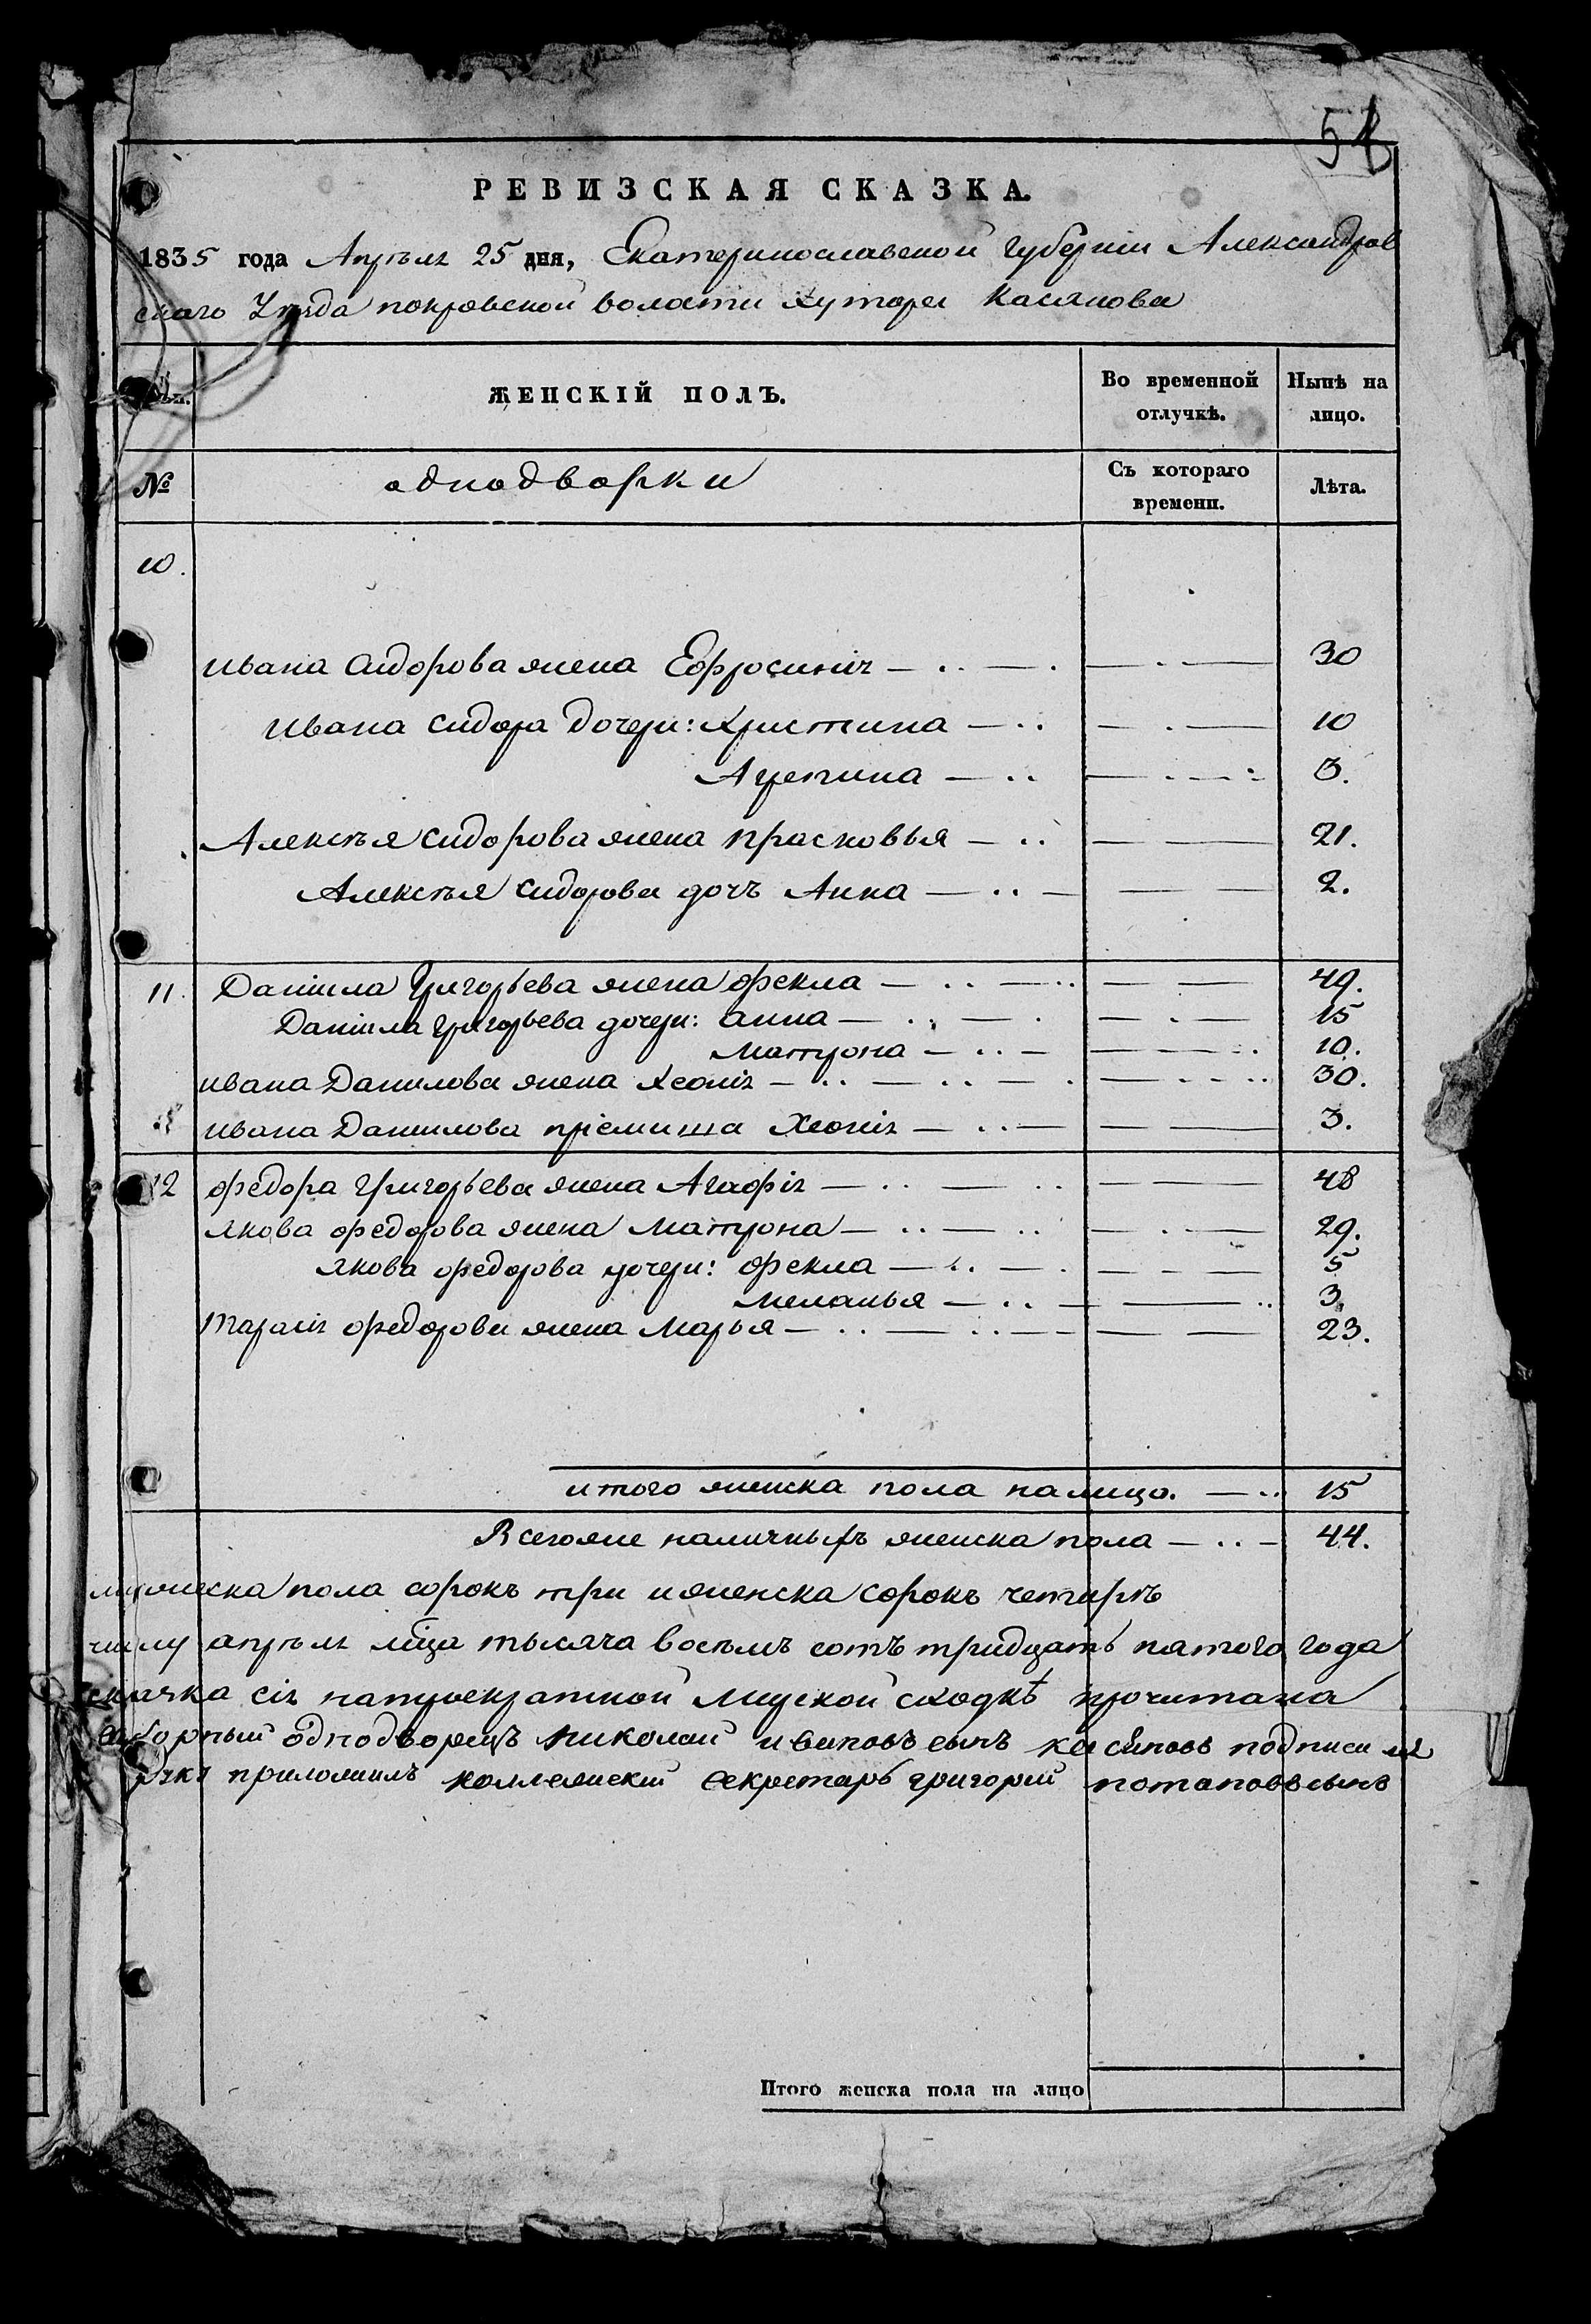 51
РЕВИЗСКАЯ СКАЗКА.
1835 года Апрѣля 25 дня, Екатеринославской губерніи Александров
скаго Уѣзда покровской волости хутора Касянова
ЖЕНСКІЙ ПОЛЪ.
Во временной отлучкѣ.
Нынѣ на лицо.
№
однодворки
Съ котораго времени.
Лѣта.
10.
ивана сидорова жена Ефросинія — 30
ивана сидора дочери: христина — 10
Агрепина — 3.
Алексѣя сидорова жена прасковья — 21.
Алексѣя сидорова дочъ Анна — 2.
11. Даніила Григорьева жена фекла — 49.
Даніила григорьева дочери: анна — 15
матрона — 10.
ивана Данилова жена хеонія — 30.
ивана Данилова пріемиша Хеонія — 3.
12 федора григорьева жена Агафія — 48
якова федорова жена матрона — 29.
якова федорова дочери: фекла — 5
меланья — 3.
тарасія федорова жена марья — 23.
итого женска пола налицо. — 15
Всегоже наличныхъ женска пола — 44.
пола сорокъ три иженска сорокъ четыре
числу апрѣля мца тысяча восемъ сотъ тридцать пятого года
сія натроекратной мирской сходкѣ прочитана
однодворецъ николай ивановъ сынъ касяновъ подписи
приложилъ коллежский секретарь григорий потаповъ сынъ
Итого женска пола на лицо